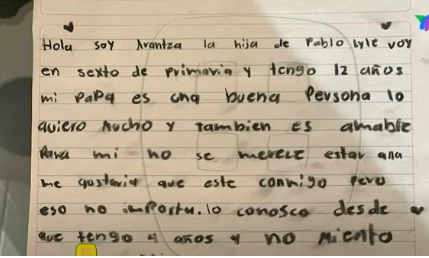 Hola soy Arantza la hija de Pablo Lyle voy
en sexto de primaria y tengo 12 años
mi papa es una buena Persona lo
quiero mucho y tambien es amable
Para mi no se merece estar aya
me gustaria que este conmigo pero
eso no importa. lo conosco desde
que tengo 4 años y no miento